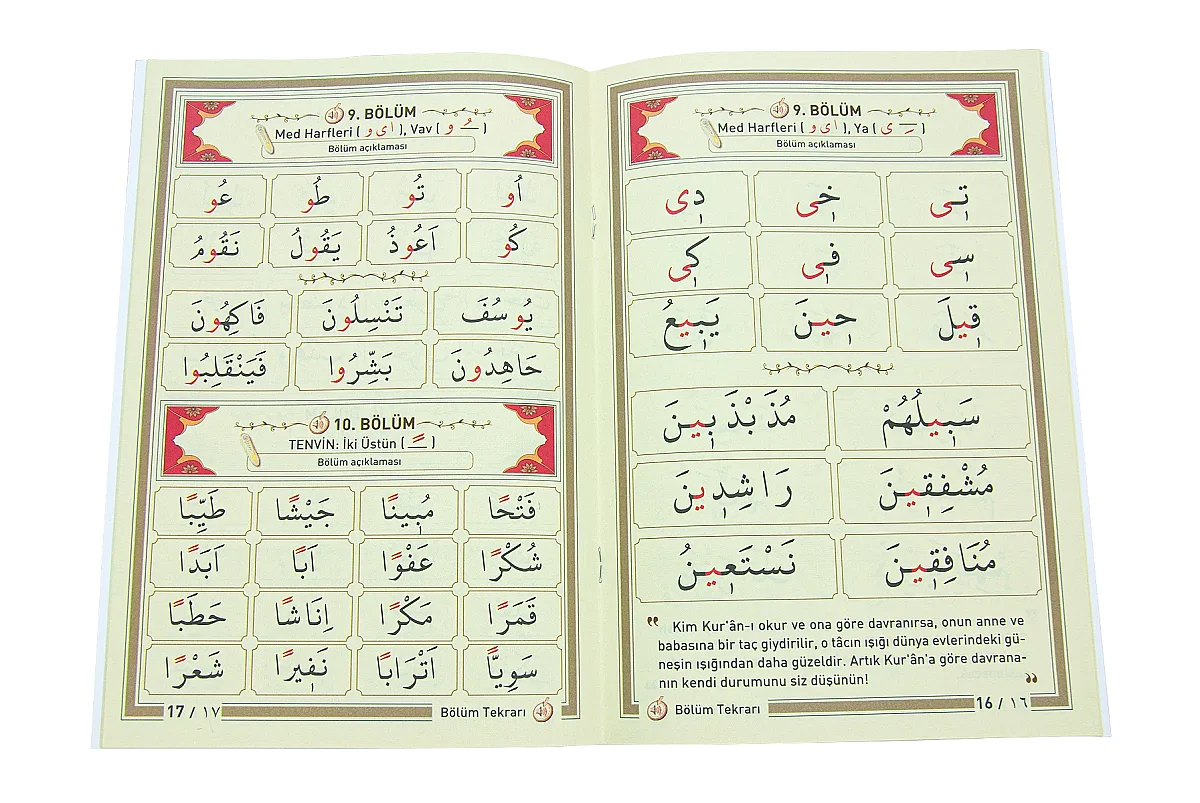 9. BÖLÜM
Med Harfleri ( ا ى و ), Ya ( ـِ ى )
Bölüm açıklaması
تِى خِى دِى
سِى فِى كِى
قِيلَ حِينَ يَبِيعُ
سَبِيلُهُمْ مُذَبْذَبِينَ
مُشْفِقِينَ رَاشِدِينَ
مُنَافِقِينَ نَسْتَعِينُ
" Kim Kur'ân-ı okur ve ona göre davranırsa, onun anne ve
babasına bir taç giydirilir, o tâcın ışığı dünya evlerindeki gü-
neşin ışığından daha güzeldir. Artık Kur'ân'a göre davrana-
nın kendi durumunu siz düşünün! "
Bölüm Tekrarı 16 / ١٦
9. BÖLÜM
Med Harfleri ( ا ى و ), Vav ( ـُ و )
Bölüm açıklaması
اُو تُو طُو عُو
كُو اَعُوذُ يَقُولُ نَقُومُ
يُوسُفَ تَنْسِلُونَ فَاكِهُونَ
حَاهِدُونَ بَشِّرُوا فَيَنْقَلِبُوا
10. BÖLÜM
TENVİN: İki Üstün ( ـً )
Bölüm açıklaması
فَتْحًا مُبِينًا جَيْشًا طَيِّبًا
شُكْرًا عَفْوًا اَبًا اَبَدًا
قَمَرًا مَكْرًا اِنَاثًا حَطَبًا
سَوِيًّا اَتْرَابًا نَفِيرًا شَعْرًا
17 / ١٧ Bölüm Tekrarı